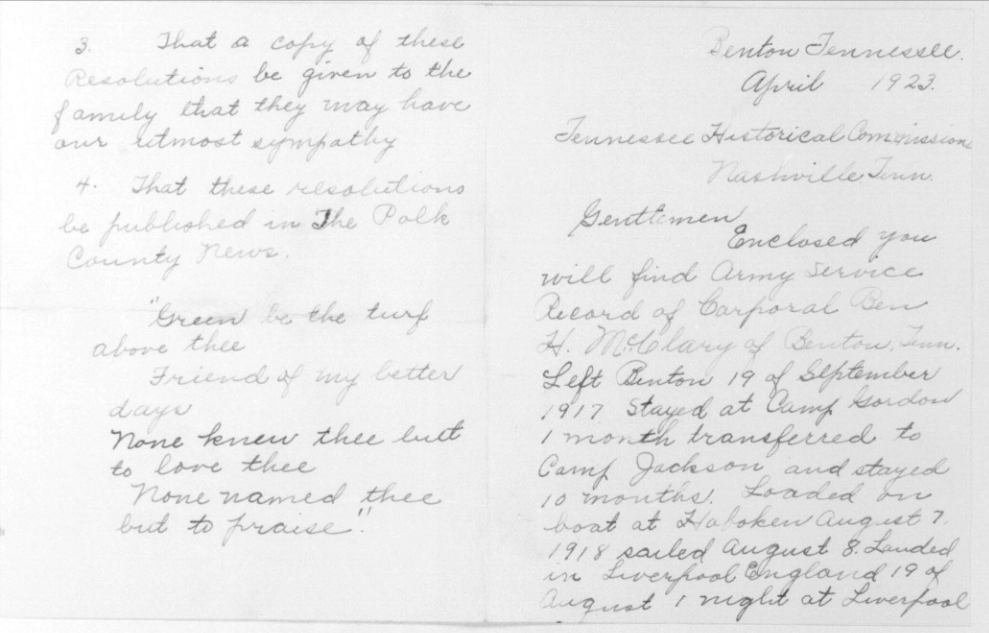 3. That a copy of these
Resolutions be given to the
family that they may have
our utmost sympathy
4. That these resolutions
be published in The Polk
County News.
"Green be the turf
above thee
Friend of my better
days
None knew thee but
to love thee
None named thee
but to praise".
Benton Tennessee.
April 1923.
Tennessee Historical Commission
Nashville, Tenn.
Gentlemen
Enclosed you
will find Army Service
Record of Corporal Ben
H. McClary of Benton, Tenn.
Left Benton 19 of September
1917 Stayed at Camp Gordon
1 month transferred to
Camp Jackson and stayed
10 months. Loaded on
boat at Hoboken August 7.
1918 sailed August 8. Landed
in Liverpool England 19 of
August 1 night at Liverpool